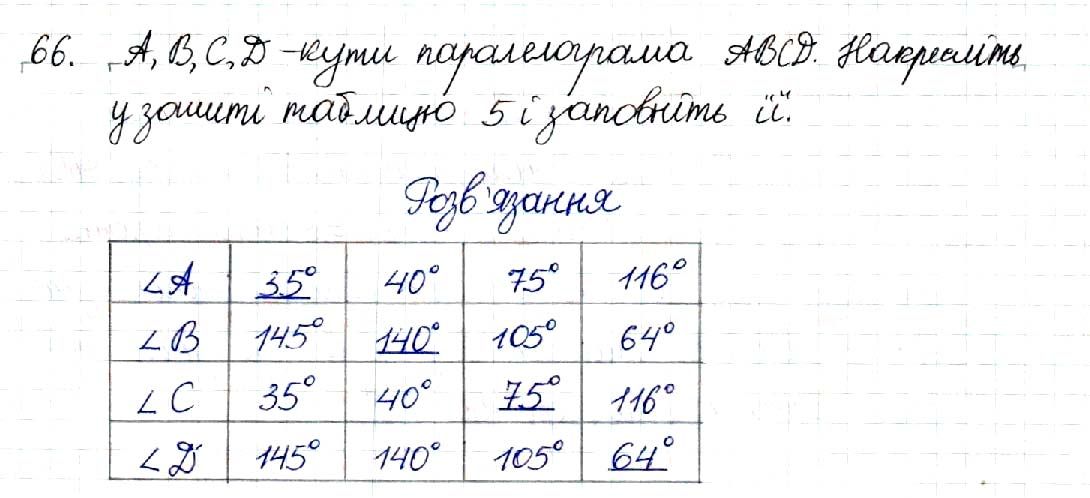 66. A, B, C, D – кути паралелограма ABCD. Накресліть
у зошиті таблицю 5 і заповніть її.
Розв'язання
∠A 35° 40° 75° 116°
∠B 145° 140° 105° 64°
∠C 35° 40° 75° 116°
∠D 145° 140° 105° 64°